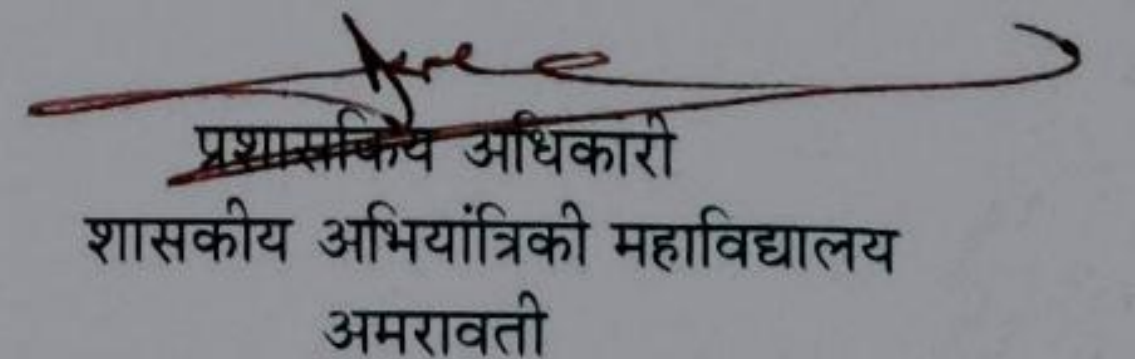 प्रशासकिय अधिकारी
शासकीय अभियांत्रिकी महाविद्यालय
अमरावती